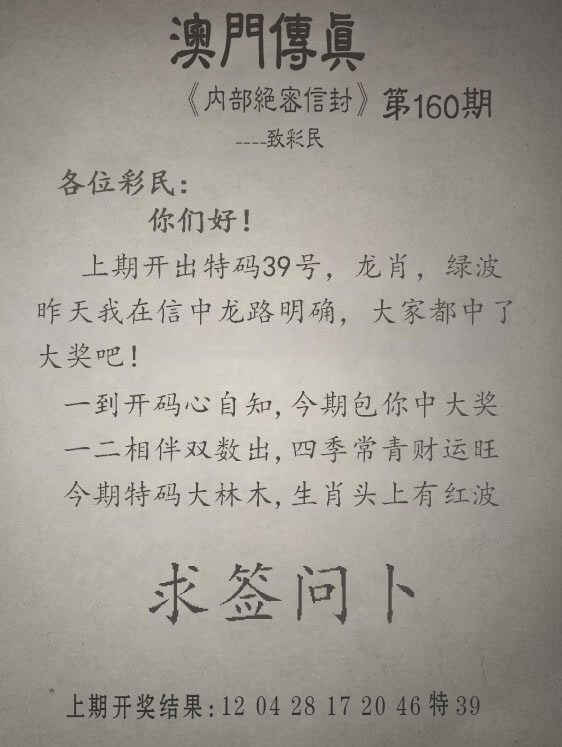 澳門傳真
《内部絕密信封》第160期
----致彩民
各位彩民:
你们好!
上期开出特码39号，龙肖，绿波
昨天我在信中龙路明确，大家都中了
大奖吧!
一到开码心自知,今期包你中大奖
一二相伴双数出,四季常青财运旺
今期特码大林木,生肖头上有红波
求签问卜
上期开奖结果:12 04 28 17 20 46特39